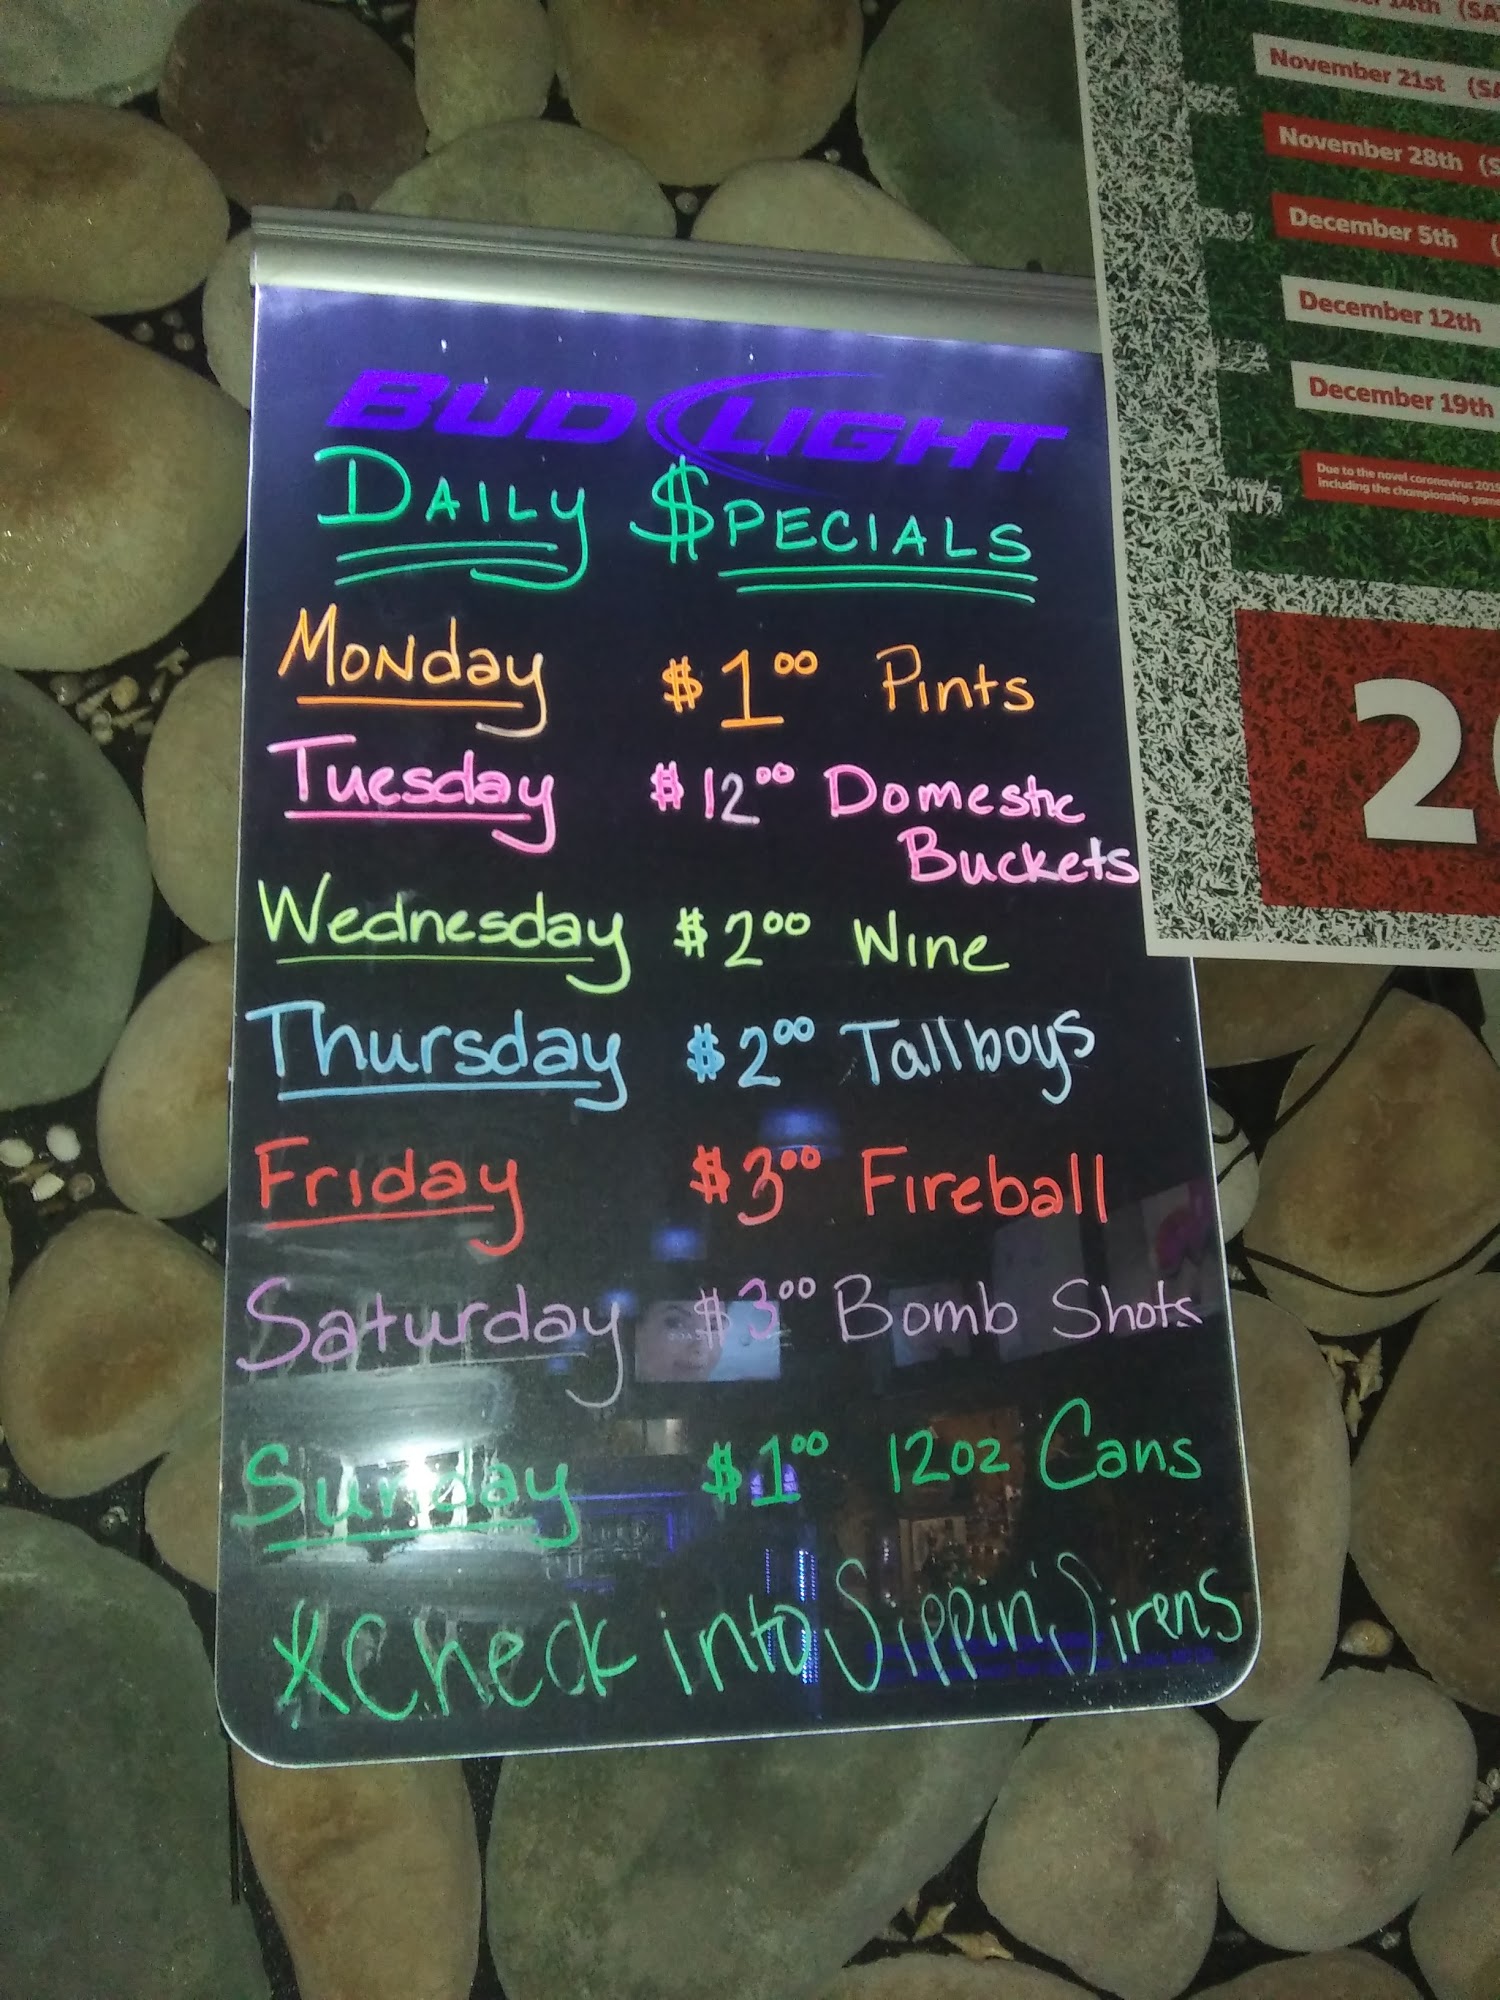 BUD LIGHT
DAILY $PECIALS
Monday $1.00 Pints
Tuesday $12.00 Domestic
Buckets
Wednesday $2.00 Wine
Thursday $2.00 Tallboys
Friday $3.00 Fireball
Saturday $3.00 Bomb Shots
Sunday $1.00 12oz Cans
*Check into Sippin' Sirens
14th (SA
November 21st (SA
November 28th (S
December 5th (
December 12th
December 19th
Due to the novel coronavirus 2019
including the championship game
2